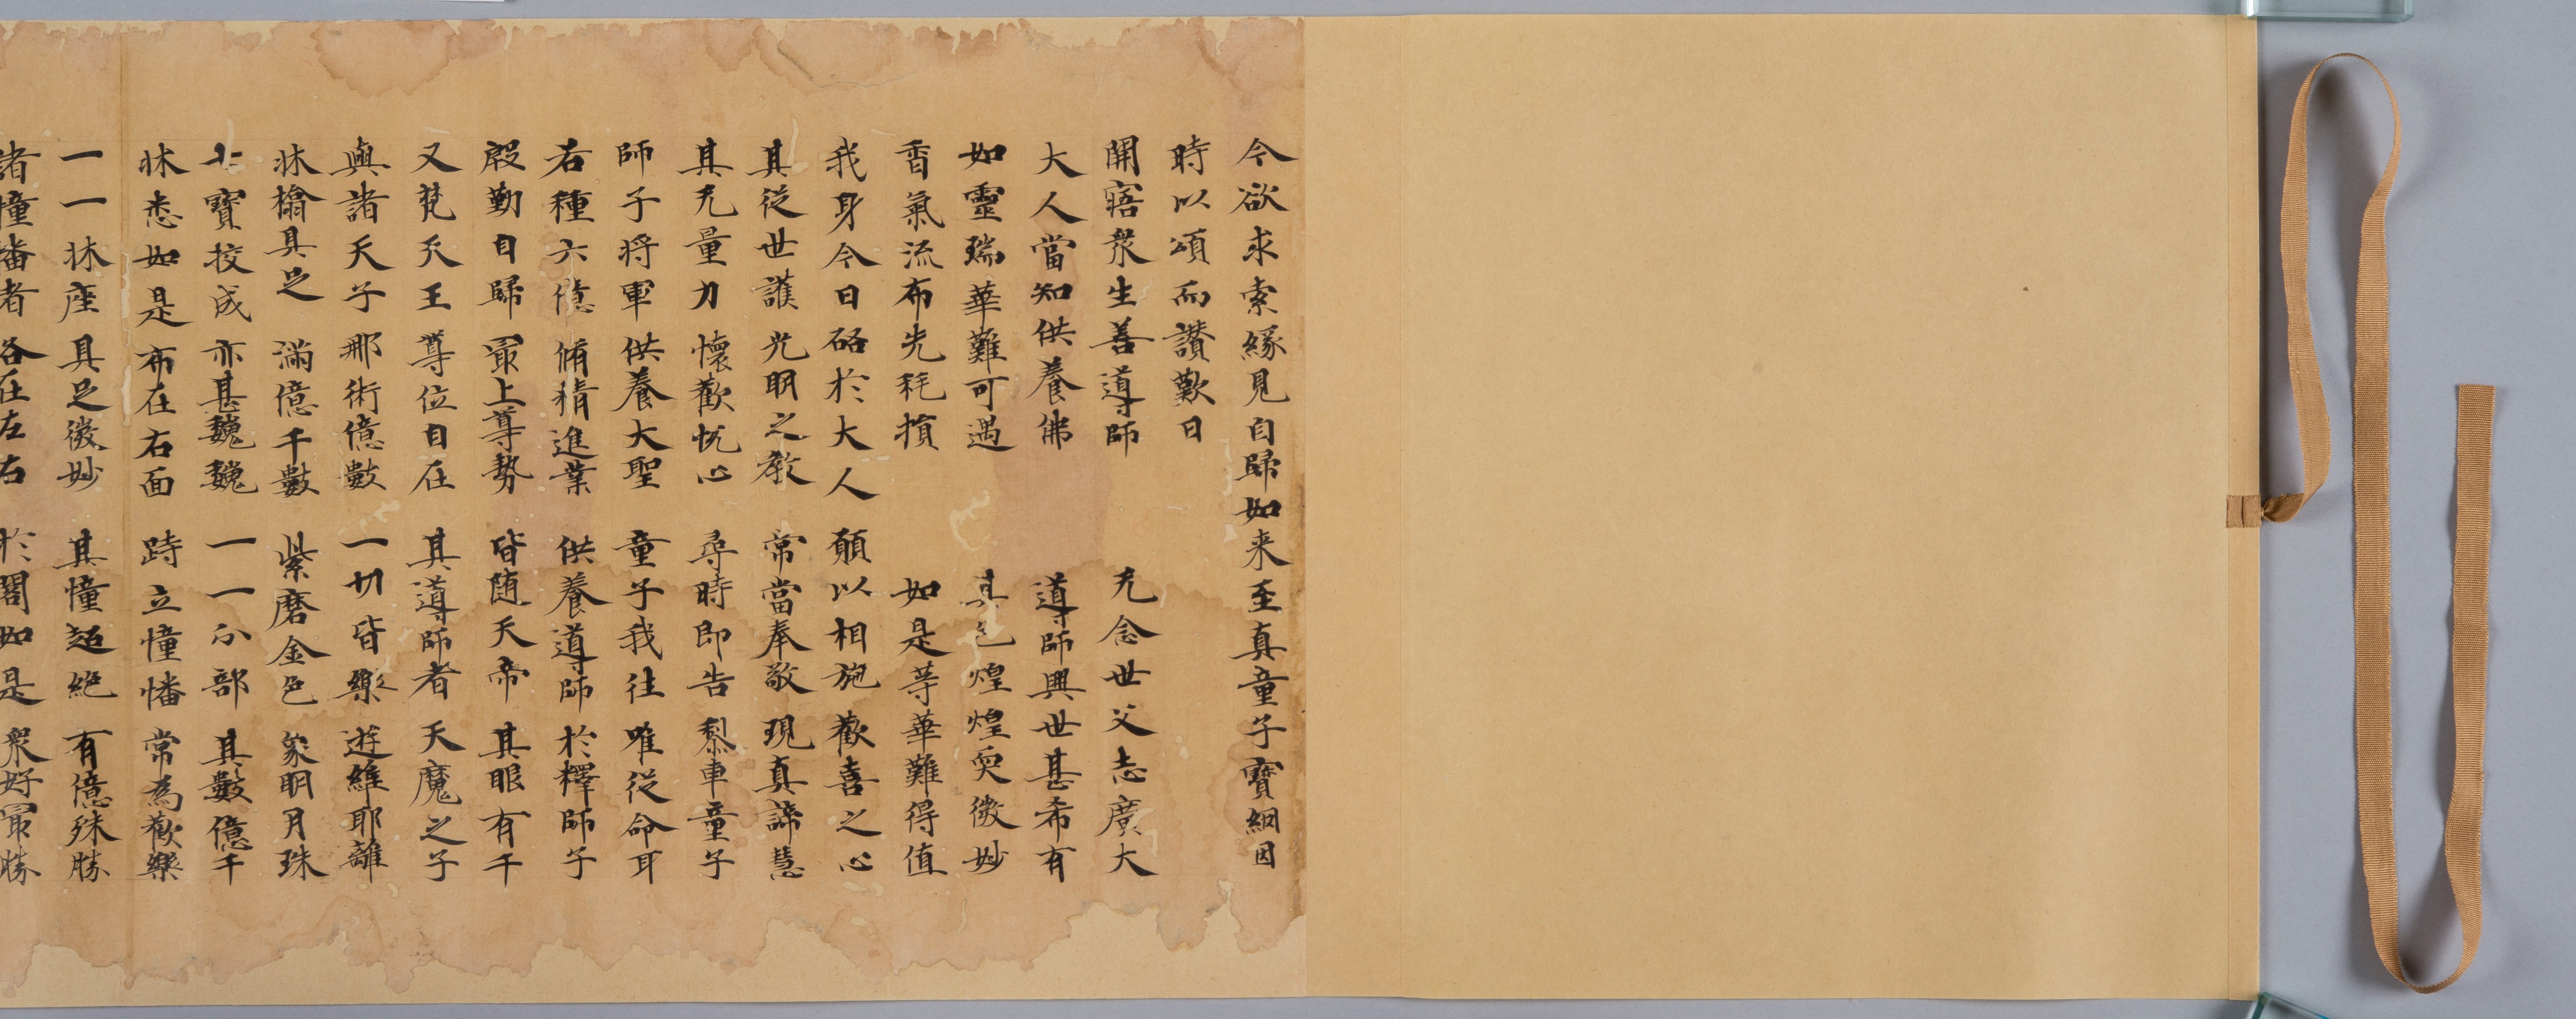 今欲求索縁見自歸如来至真童子寶網因
時以頌而讃歎曰
開寤衆生善導師 无念世父志廣大
大人當知供養佛 導師興世甚希有
如靈瑞華難可遇 其色煌煌奭微妙
香氣流布先秏損 如是等華難得值
我身今日碦於大人 願以相施歡喜之心
其從世護光明之教 常當奉敬現真諦慧
其无量力懷歡忱心 尋時即告梨車童子
師子将軍供養大聖 童子我往唯從命耳
右種六億脩精進業 供養導師於釋師子
殷勤自歸冣上尊勢 皆随天帝其眼有千
又梵天王尊位自在 其導師者天魔之子
與諸天子那術億數 一切皆樂遊維耶離
牀橋具足滿億千數 紫磨金色象明月珠
七寶挍成亦甚巍巍 一一分部其數億千
牀悉如是布在右面 跱立幢幡常為歡樂
一一牀座具足微妙 其幢超絕有億殊勝
諸幢幡者各在左右 於閣如是衆好冣勝